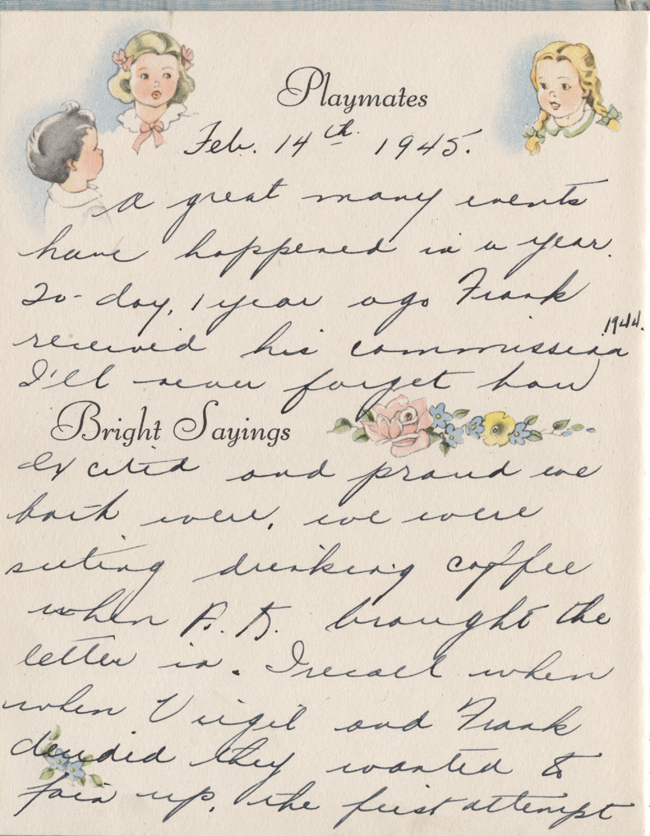 Playmates
Feb. 14th. 1945.
A great many events
have happened in a year.
To-day, 1 year ago Frank
1944.
received his commission
I'll never forget how
Bright Sayings
excited and proud we
both were, we were
sitting drinking coffee
when A. K. brought the
letter in. I recall when
when Virgil and Frank
decided they wanted to
join up, the first attempt